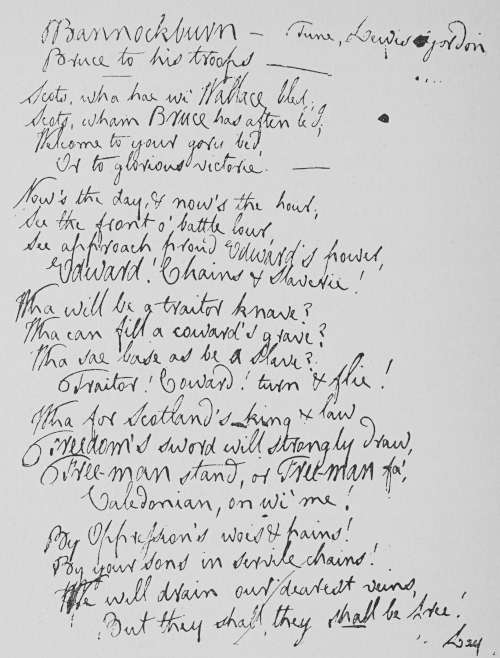 Bannockburn — Tune, Lewis Gordon
Bruce to his troops —
Scots, wha hae wi' Wallace bled,
Scots, wham Bruce has aften led,
Welcome to your gory bed,
Or to glorious victorie. —
Now's the day, & now's the hour;
See the front o' battle lour,
See approach proud Edward's power,
Edward! Chains & Slaverie!
Wha will be a traitor knave?
Wha can fill a coward's grave?
Wha sae base as be a slave?
Traitor! Coward! turn & flie!
Wha for Scotland's king & law
Freedom's sword will strongly draw,
Free-man stand, or Free-man fa',
Caledonian, on wi' me!
By Oppression's woes & pains!
By your sons in servile chains!
We will drain our dearest veins,
But they shall, they shall be free!